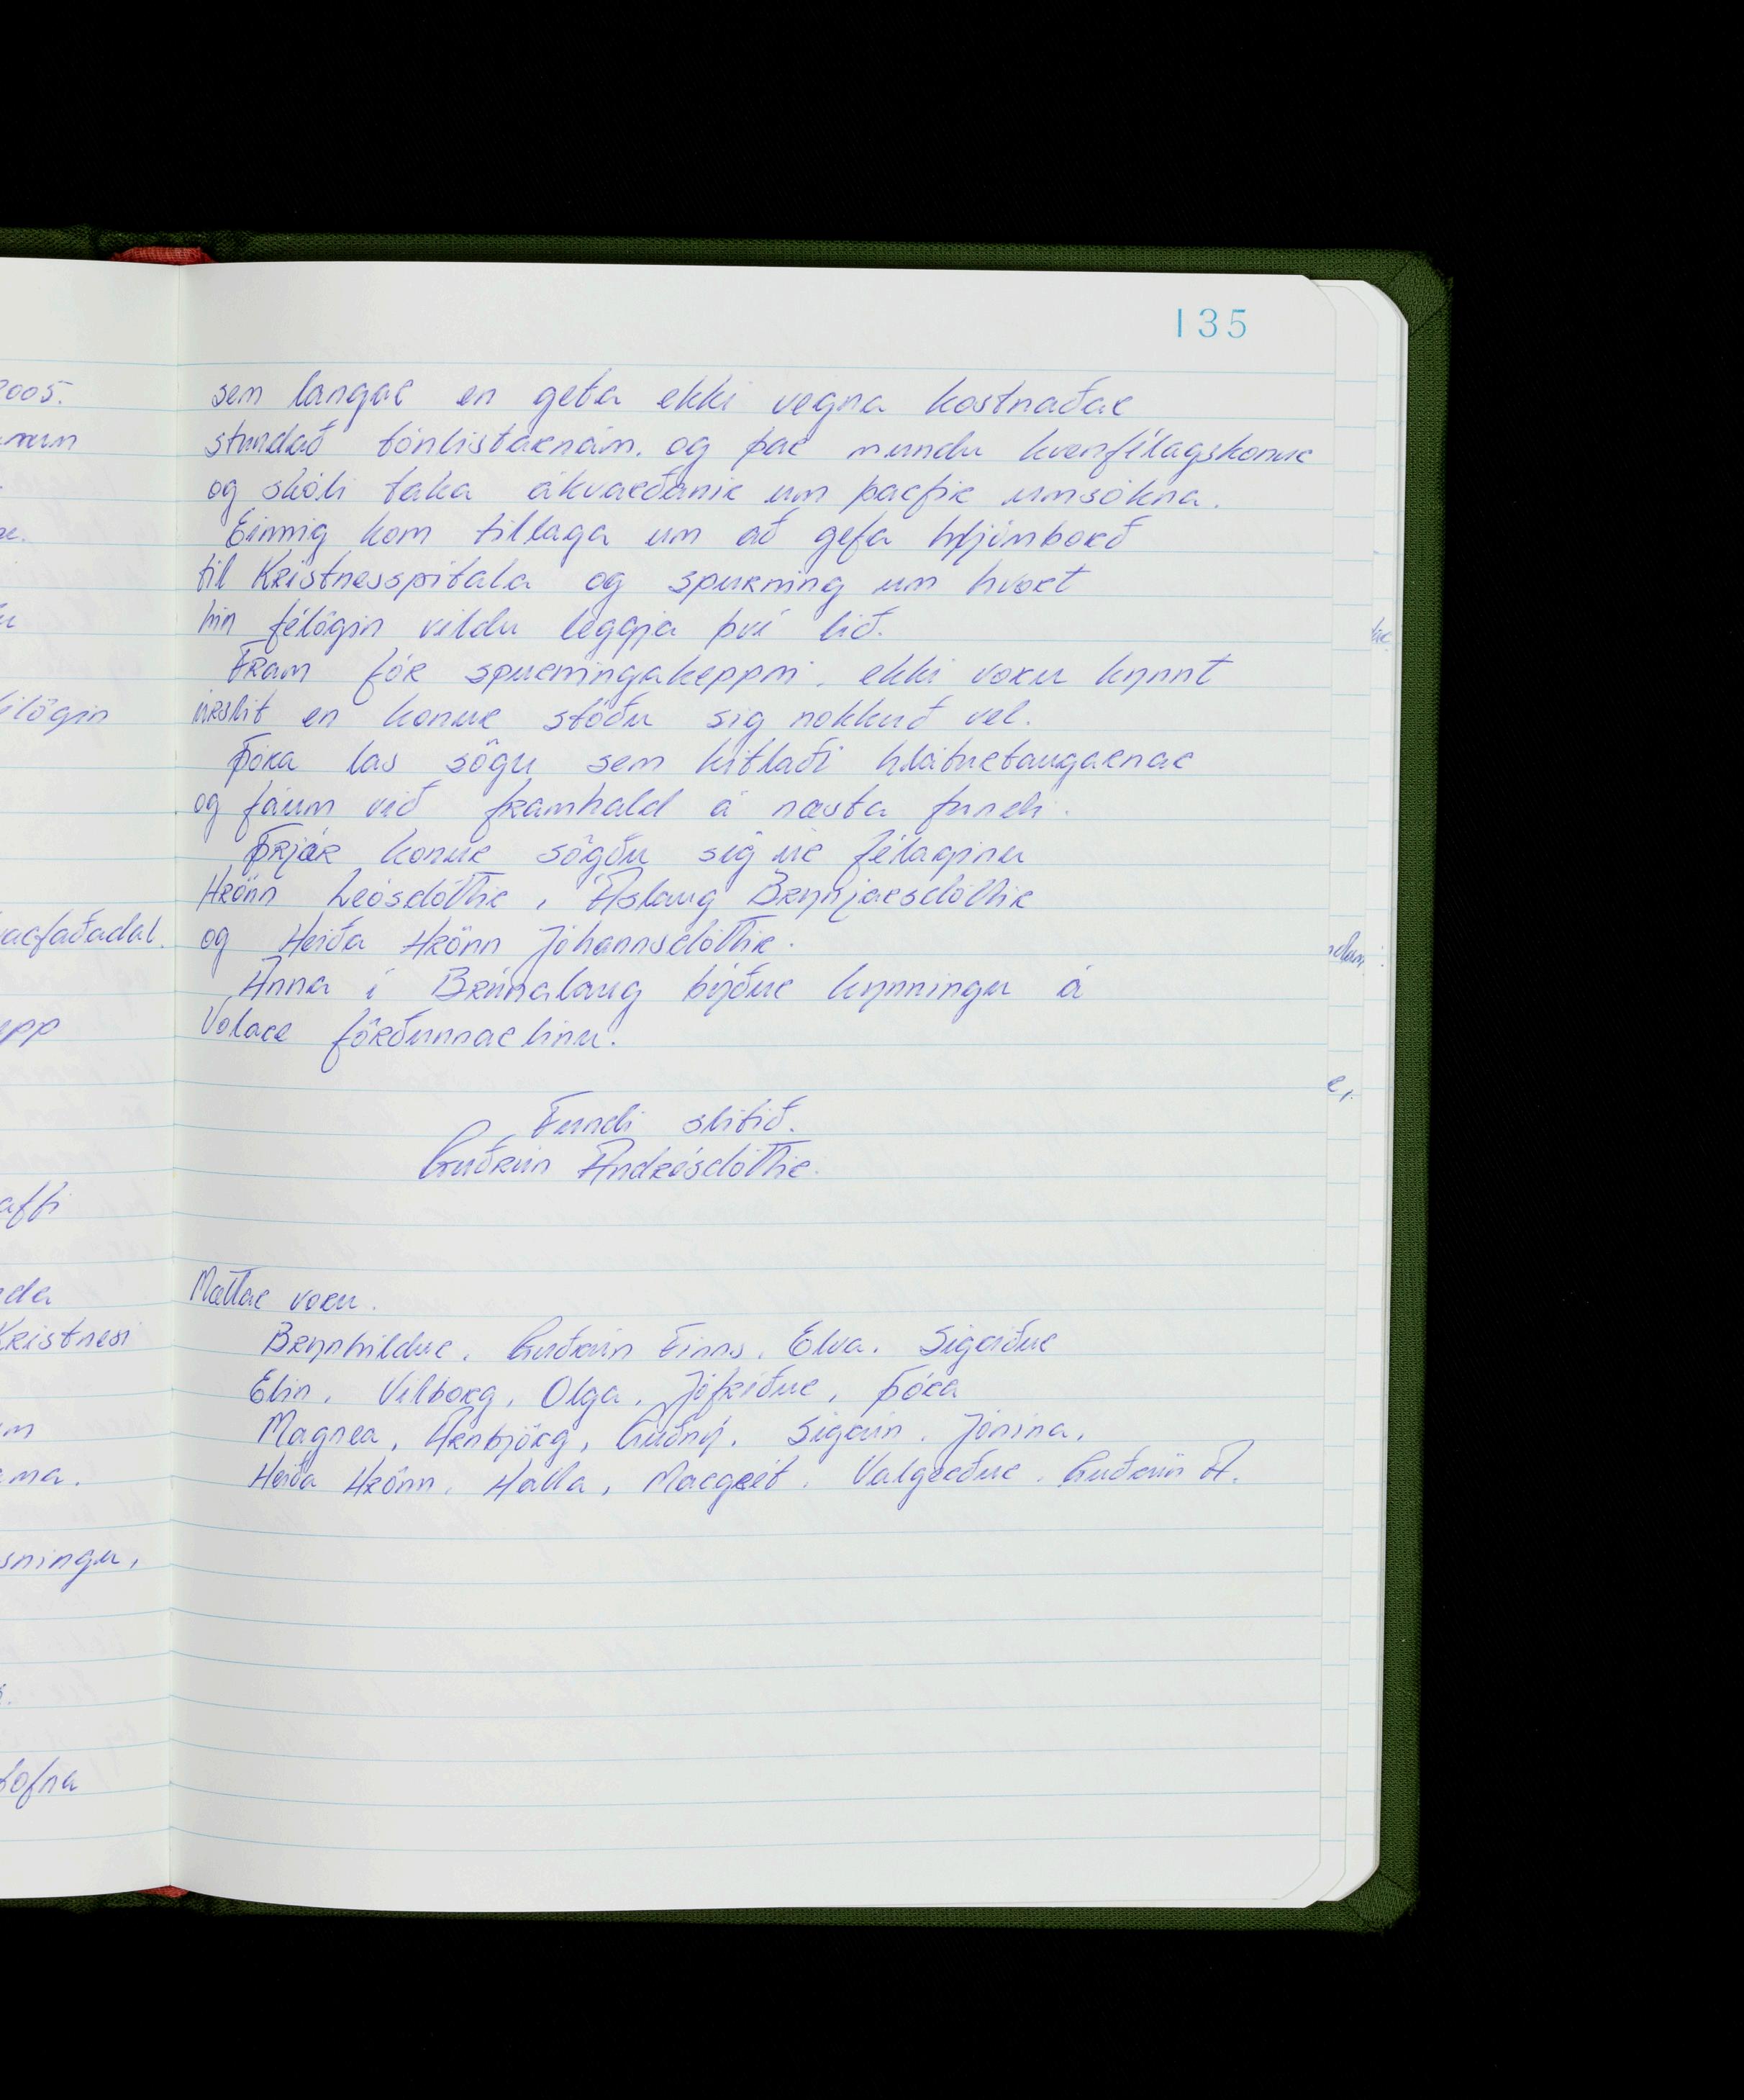 135
sem langar en geta ekki vegna kostnaðar
stundað tónlistarnám. og þar mundu kvenfélagskonur
og skóli taka ákvarðanir um þarfir umsókna.
Einnig kom tillaga um að gefa hljómborð
til Kristnesspítala og spurning um hvort
hin félögin vildu leggja því lið.
Fram fór spurningakeppni. ekki voru kynnt
úrslit en konur stóðu sig nokkuð vel.
Þóra las sögu sem kitlaði hláturtaugarnar
og fáum við framhald á næsta fundi.
Þrjár konur sögðu sig úr félaginu
Hrönn Leósdóttir, Áslaug Brynjarsdóttir
og Heiða Hrönn Jóhannsdóttir.
Anna í Brúnalaug býður kynningu á
Volare förðunnarlínu.
Fundi slitið.
Guðrún Andrésdóttir.
Mættar voru.
Brynhildur. Guðrún Finns. Elva. Sigríður
Elín. Vilborg, Olga, Jófríður, Þóra
Magnea, Arnbjörg, Guðný. Sigrún. Jónína.
Heiða Hrönn. Halla, Margrét. Valgerður. Guðrún A.
2005.
arfaðadal.
Kristnesi